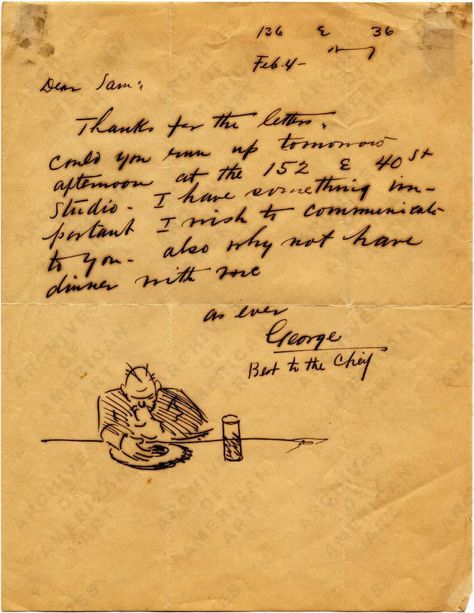 136 E 36
NY
Feb. 4-
Dear Sam:
Thanks for the letters.
Could you run up tomorrow
afternoon at the 152 E 40 St
Studio - I have something im-
portant I wish to communicate
to you - also why not have
dinner with me
as ever
George
Best to the Chief
ARCHIVES
OF
AMERICAN
ART